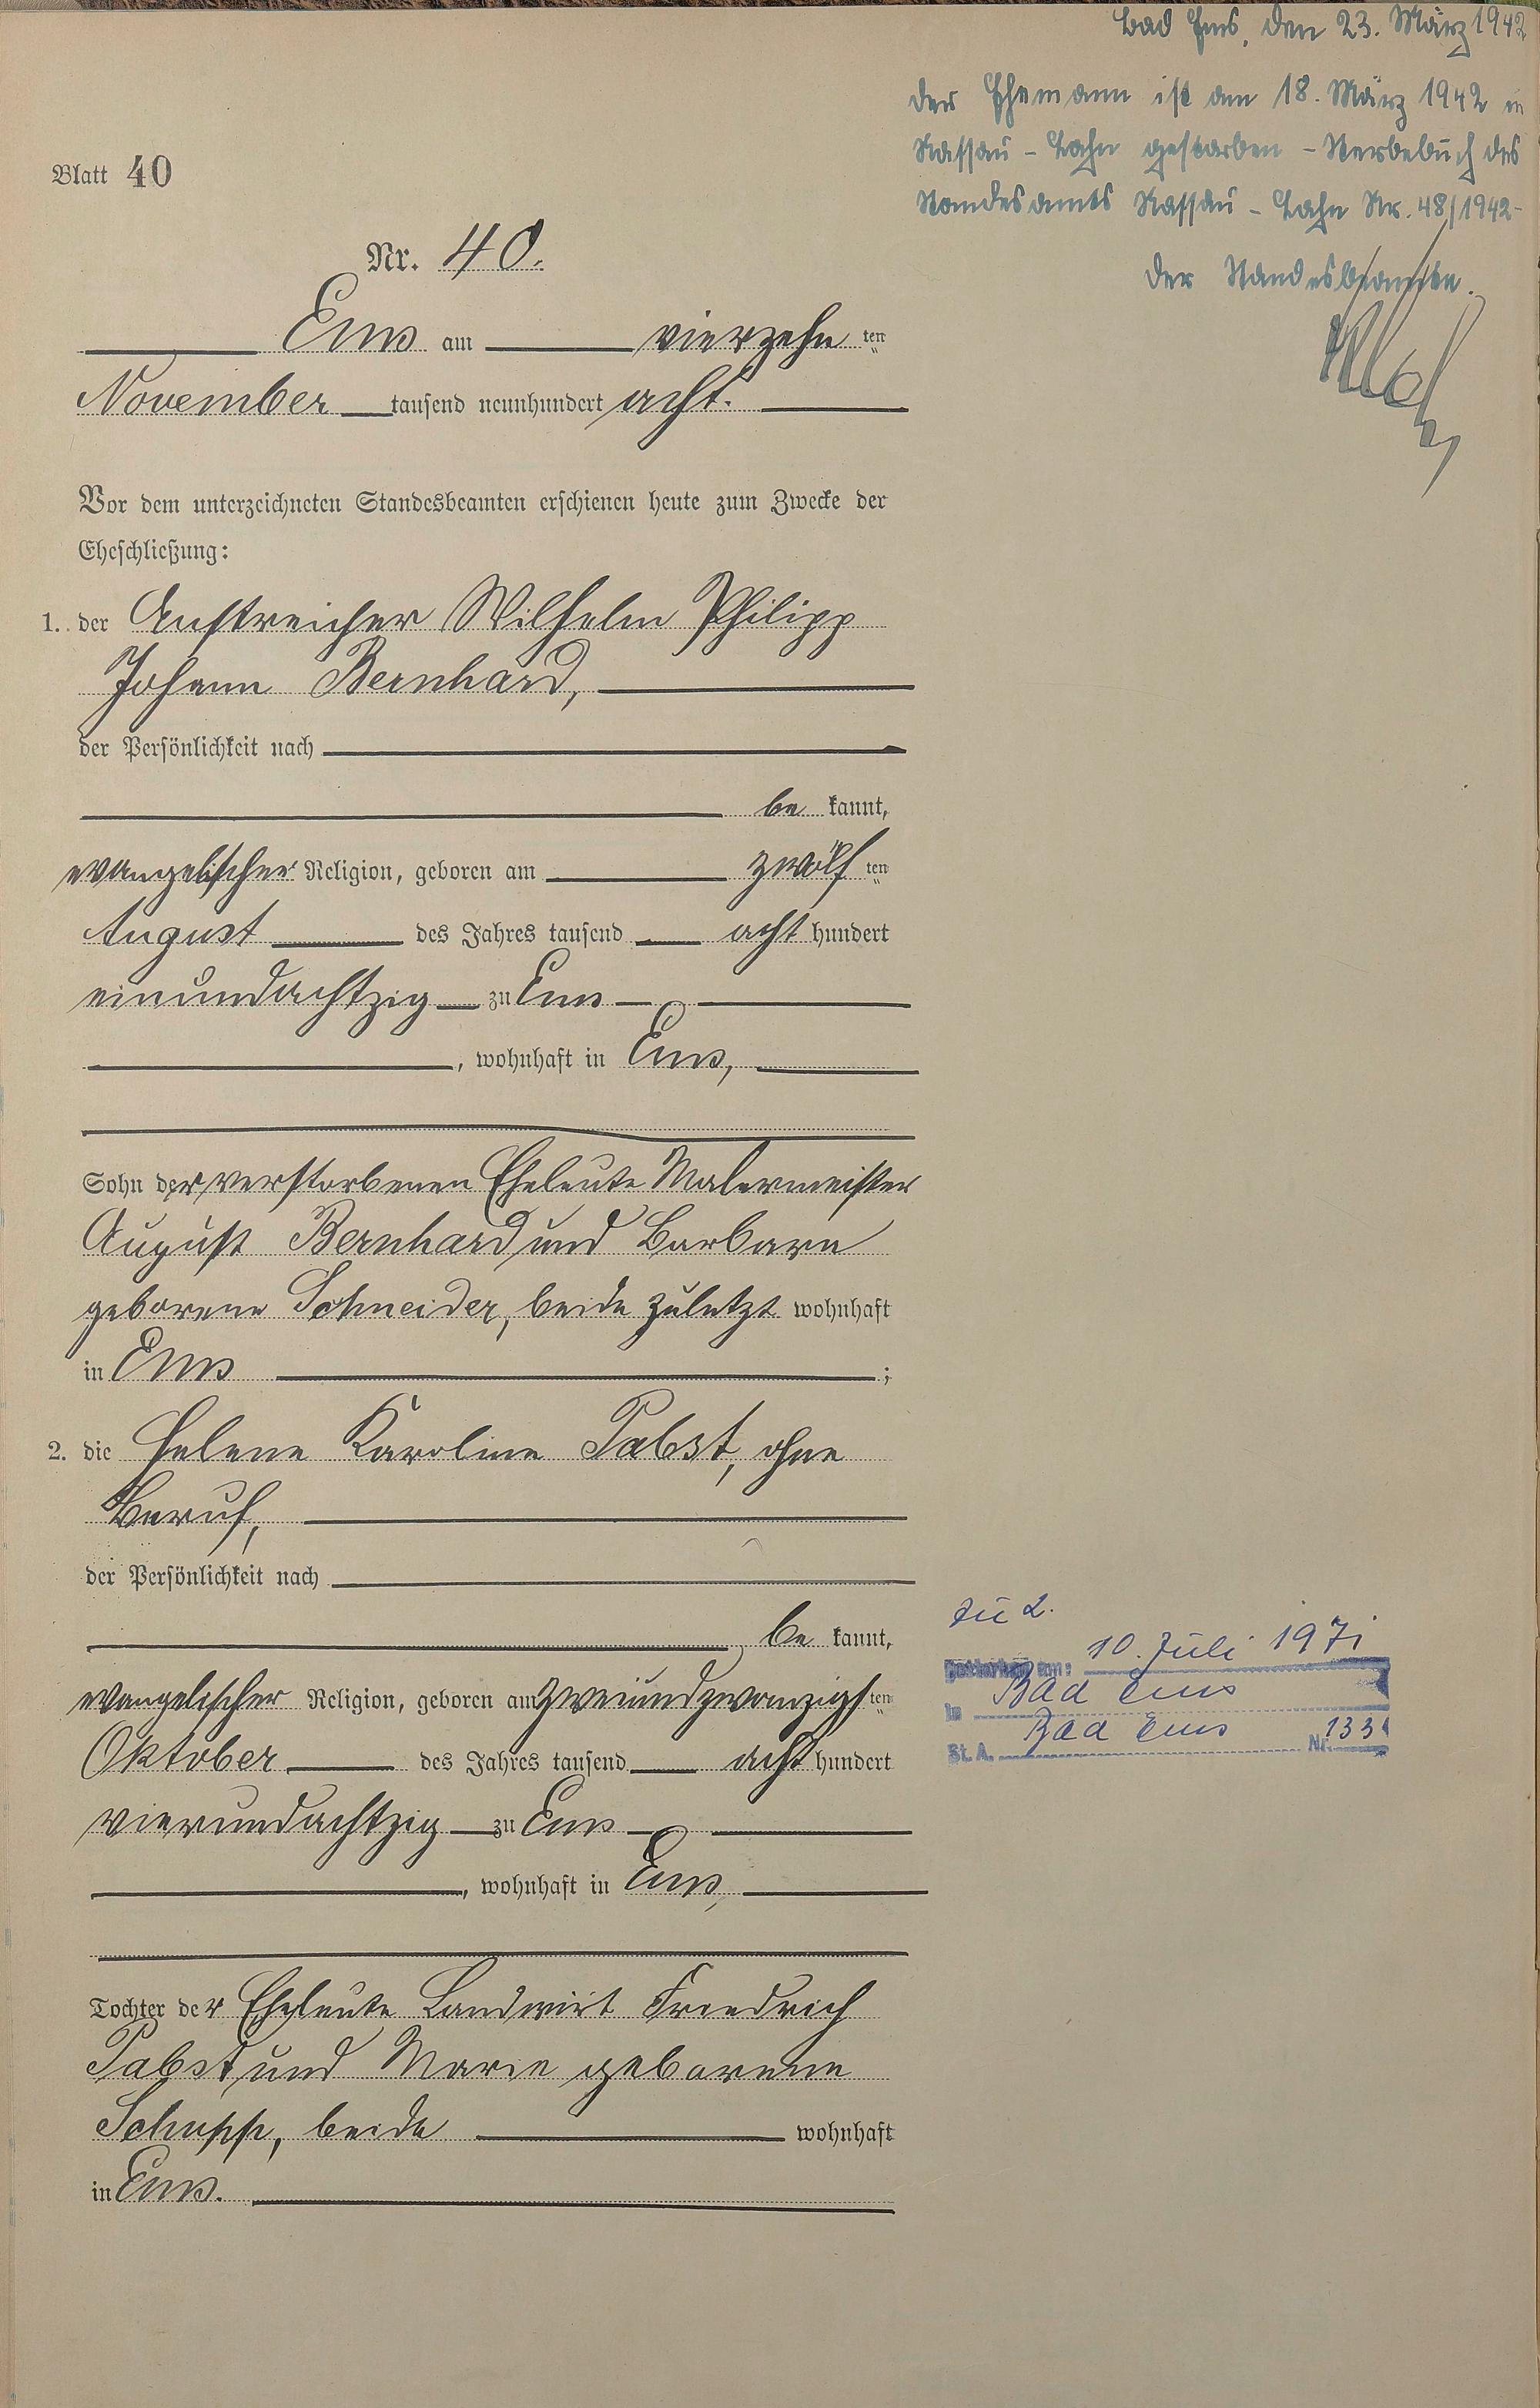 Bad Ems, den 23. März 1942
Der Ehemann ist am 18. März 1942 in
Nassau - Lahn gestorben - Sterbebuch des
Standesamts Nassau - Lahn Nr. 48/1942-
Der Standesbeamte.
Blatt 40
Nr. 40.
Ems am vierzehn ten
November tausend neunhundert acht.
Vor dem unterzeichneten Standesbeamten erschienen heute zum Zwecke der
Eheschließung:
1. der Anstreicher Wilhelm Philipp
Johann Bernhard,
der Persönlichkeit nach
be kannt,
evangelischer Religion, geboren am zwölf ten
August des Jahres tausend acht hundert
einundachtzig zu Ems
, wohnhaft in Ems,
Sohn der verstorbenen Eheleute Malermeister
August Bernhard und Barbara
geborene Schneider, beide zuletzt wohnhaft
in Ems ;
2. die Helene Karoline Pabst, ohne
Beruf,
der Persönlichkeit nach
be kannt,
evangelischer Religion, geboren am zweiundzwanzigs ten
Oktober des Jahres tausend acht hundert
vierundachtzig zu Ems
, wohnhaft in Ems,
Tochter der Eheleute Landwirt Friedrich
Pabst und Marie geborene
Schupp, beide wohnhaft
in Ems.
Zu 2.
Gestorben am: 10. Juli 1971
in Bad Ems
St. A. Bad Ems Nr. 133